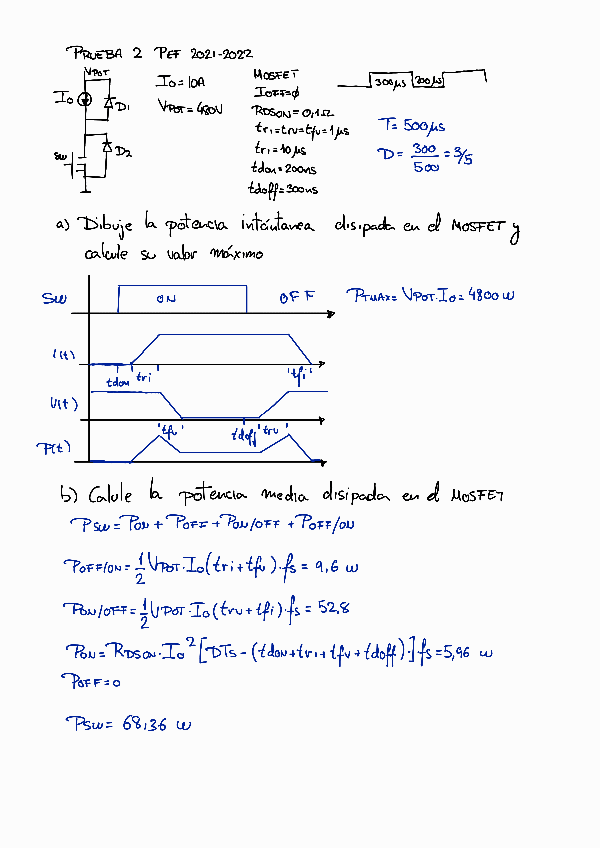 PRUEBA 2 PEF 2021-2022
VPOT
Io
D1
SW
D2
Io = 10A
VPOT = 480V
MOSFET
IOFF = ϕ
RDSON = 0,1Ω
tri = trv = tfv = 1μs
tri = 10μs
tdon = 200ns
tdoff = 300ns
300μs 200μs
T = 500μs
D = 300/500 = 3/5
a) Dibuje la potencia intántanea disipada en el MOSFET y
calcule su valor máximo
SW ON OFF
PTMAX = VPOT·Io = 4800 W
i(t)
tdon tri tfi
V(t)
tfv tdoff trv
P(t)
b) Calule la potencia media disipada en el MOSFET
PSW = PON + POFF + PON/OFF + POFF/ON
POFF/ON = 1/2 VPOT·Io(tri + tfv)·fs = 9,6 W
PON/OFF = 1/2 VPOT·Io(trv + tfi)·fs = 52,8
PON = RDSON·Io²[DTs - (tdon + tri + tfv + tdoff)·]fs = 5,96 W
POFF = 0
PSW = 68,36 W